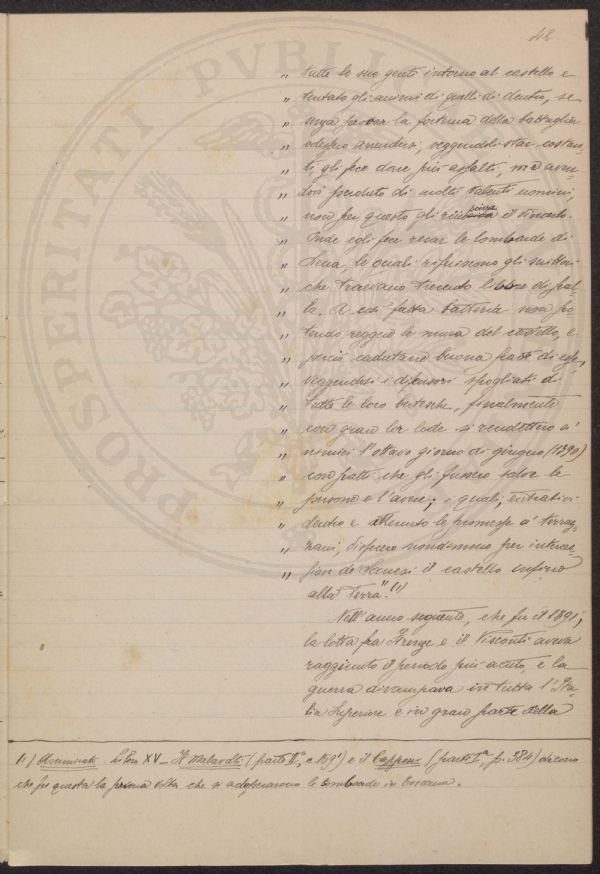 42
„ tutte le sue genti intorno al castello e
„ tentato gli animi di quelli di dentro, se
„ senza provar la fortuna della battaglia
„ volessero arrendersi, veggendoli star costan-
„ ti, gli fece dare più assalti, ma aven-
„ dovi perduto di molti valenti uomini,
„ non per questo gli riusciva il vincerlo.
„ Onde egli fece venir le bombarde di
„ Siena, le quali riferiscono gli scrittori
„ che traevano trecento libbre di pal-
„ la. A così fatta batteria non po-
„ tendo reggere le mura del castello, e
„ perciò cadutane buona parte di esse,
„ veggendosi i difensori spogliati di
„ tutte le loro bertesche, finalmente
„ con gran lor lode si rendettero a'
„ nimici l'ottavo giorno di giugno (1390)
„ con patti che gli fussero salve le
„ persone e l'avere; i quali, entrativi
„ dentro e attenute le promesse a' terraz-
„ zani, disfecero nondimeno per interces-
„ sion de' Sanesi il castello insino
alla terra". (1)
Nell'anno seguente, che fu il 1391,
la lotta fra Firenze e il Visconti aveva
raggiunto il periodo più acuto, e la
guerra divampava in tutta l'Ita-
lia Superiore e in gran parte della
(1) Ammirati. Libro XV _ Il Malavolti (parte IIa, c. 159t) e il Capponi (parte Ia, p. 384) dicono
che fu questa la prima volta che si adoperarono le bombarde in Toscana.
PROSPERITATI PVBLI